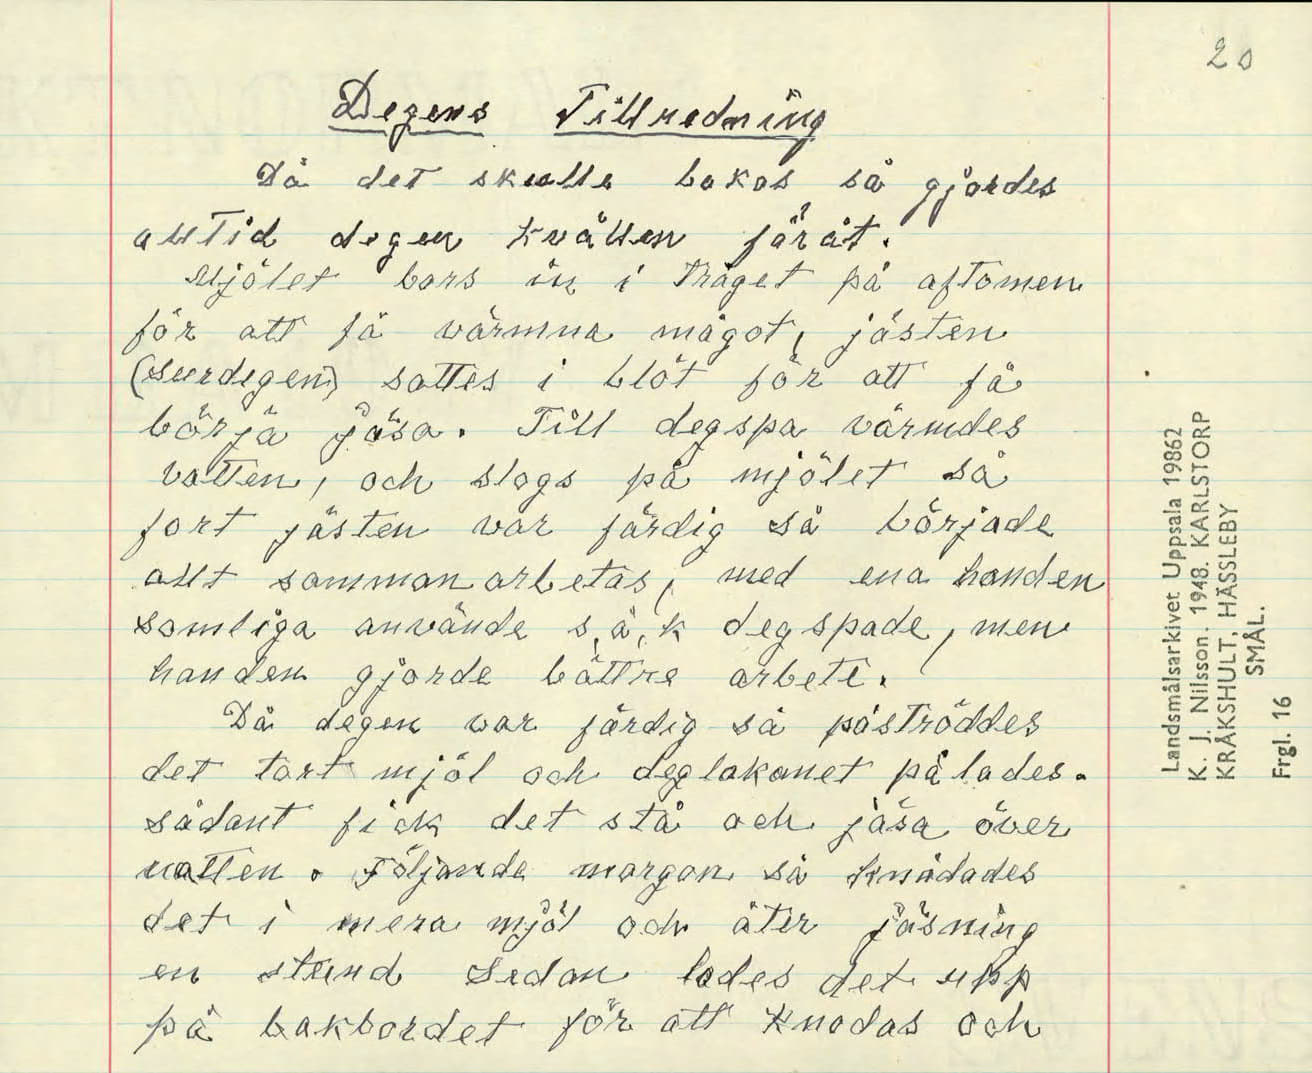 20
Degens Tillredning
Då det skulle bakas så gjordes
alltid degen kvällen föråt.
Mjölet bars in i tråget på aftonen
för att få värmna något, jästen
(surdegen) sattes i blöt för att få
börja jäsa. Till degspa värmdes
vatten, och slogs på mjölet så
fort jästen var färdig så började
allt sammanarbetas, med ena handen
somliga använde s, å, k degspade, men
handen gjorde bättre arbete.
Då degen var färdig så påströddes
det tort mjöl och deglakanet pålades.
sådant fick det stå och jäsa över
natten. Följande morgon så knådades
det i mera mjöl och åter jäsning
en stund sedan lades det upp
på bakbordet för att knodas och
Landsmålsarkivet Uppsala 19862
K. J. Nilsson. 1948. KARLSTORP
KRÅKSHULT, HÄSSLEBY
SMÅL.
Frgl. 16